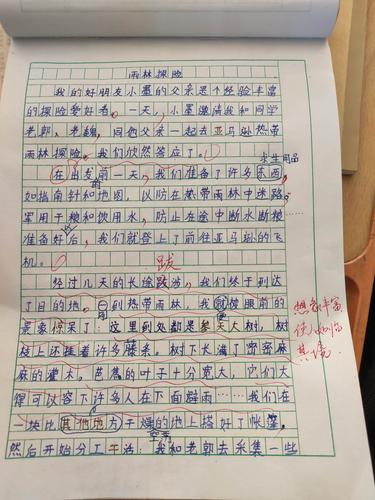 雨林探险
我的好朋友小墨的父亲是个经验丰富
的探险爱好者。一天,小墨邀请我和同学
老郭、老魏,同他父亲一起去亚马孙热带
雨林探险。我们欣然答应了。
求生用品
在出发前一天,我们准备了许多东西,
如指南针和地图,以防在热带雨林中迷路。
军用干粮和饮用水,防止在途中断水断粮……
准备好后,我们就登上了前往亚马孙的飞
机。
跋
经过几天的长途跋涉,我们终于到达
了目的地。一到热带雨林,我就被眼前的
景象惊呆了:这里到处都是参天大树,树
枝上还挂着许多藤条。树下长满了密密麻
麻的灌木。芭蕉的叶子十分宽大,它们大
得可以容下许多人在下面避雨……我们在
一块比其他地方干燥的地上搭好了帐篷,
然后开始分工干活:我和老郭去采集一些
想象丰富
使人如临
其境.